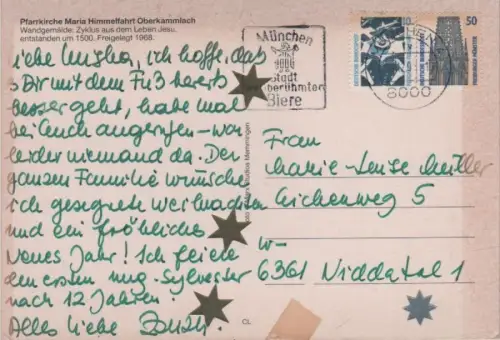 Pfarrkirche Maria Himmelfahrt Oberkammlach
Wandgemälde: Zyklus aus dem Leben Jesu,
entstanden um 1500. Freigelegt 1968.
liebe Misha, ich hoffe, daß
es Dir mit dem Fuß bereits
besser geht, habe mal
bei Euch angerufen - war
leider niemand da. Der
ganzen Familie wünsche
ich gesegnete Weihnachten
und ein fröhliches
Neues Jahr! Ich feiere
den ersten Silvester
nach 12 Jahren!
Alles liebe
München
Stadt
berühmten
Biere
8000
DEUTSCHE BUNDESPOST
10
DEUTSCHE BUNDESPOST
50
FREIBURGER MÜNSTER
Memmingen
CL
Frau
Marie-Luise Müller
Eichenweg 5
W-
6361 Niddatal 1